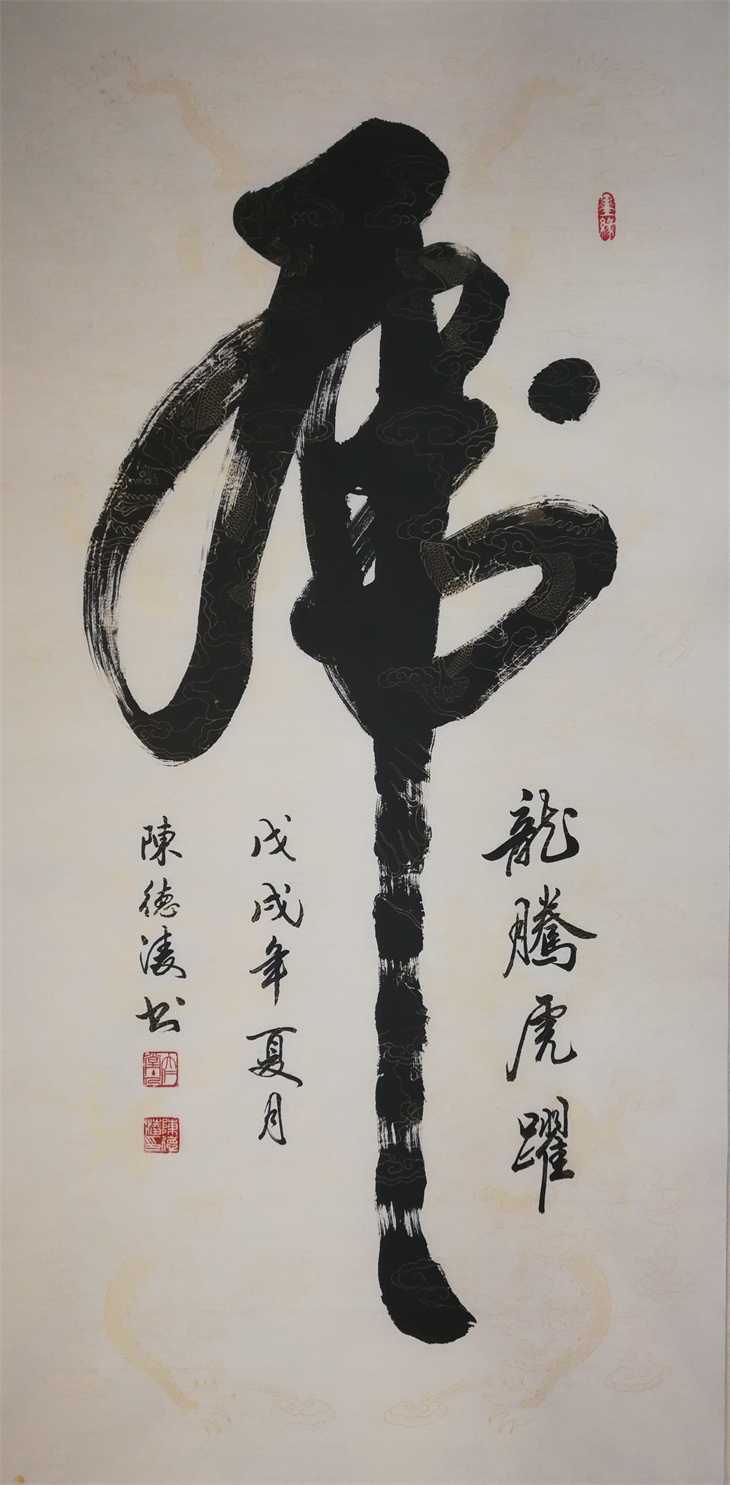 虎
龍騰虎躍
戊戌年夏月
陳德凌书
墨緣